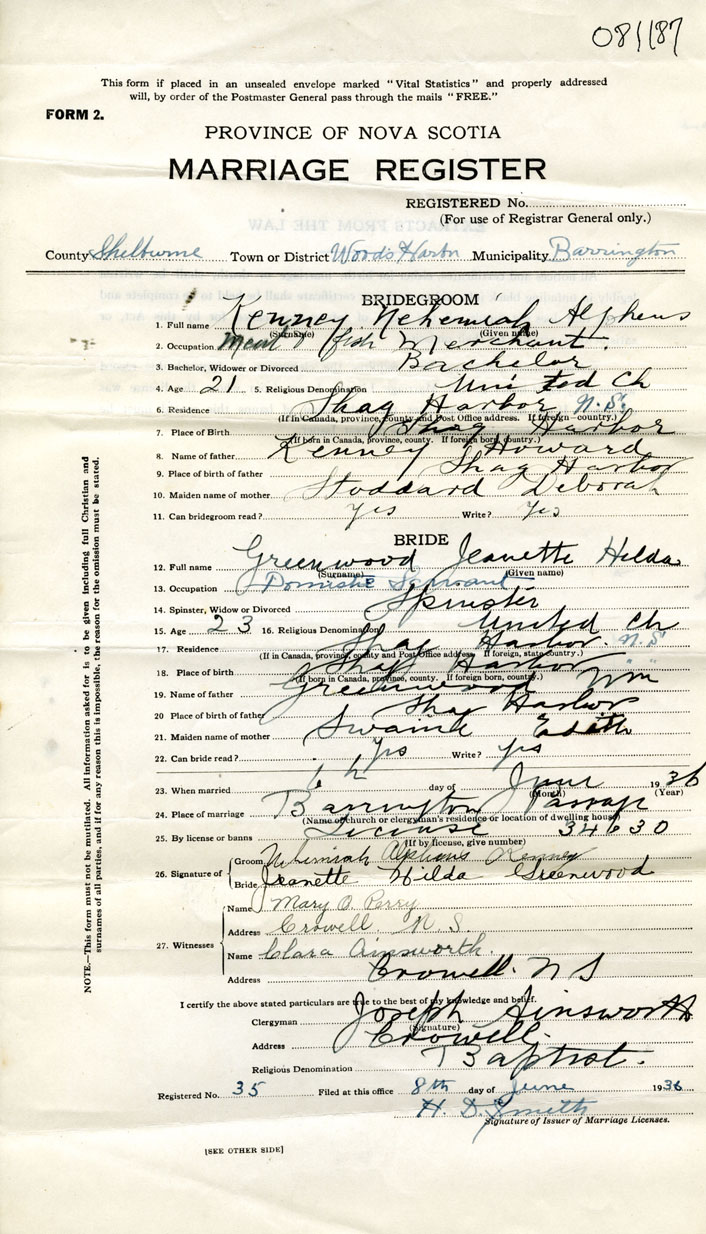 081187
This form if placed in an unsealed envelope marked "Vital Statistics" and properly addressed
will, by order of the Postmaster General pass through the mails "FREE."
FORM 2.
PROVINCE OF NOVA SCOTIA
MARRIAGE REGISTER
REGISTERED No.
(For use of Registrar General only.)
County Shelburne Town or District Woods Harbor Municipality Barrington
BRIDEGROOM
1. Full name Kenney Nehemiah Alpheus
(Surname) (Given name)
2. Occupation Meat & fish Merchant.
3. Bachelor, Widower or Divorced Bachelor
4. Age 21 5. Religious Denomination United Ch
6. Residence Shag Harbor N.S.
(If in Canada, province, county and Post Office address. If foreign—country.)
7. Place of Birth Shag Harbor
(If born in Canada, province, county. If foreign born, country.)
8. Name of father Kenney Howard
9. Place of birth of father Shag Harbor
10. Maiden name of mother Stoddard Deborah
11. Can bridegroom read? Yes Write? Yes
BRIDE
12. Full name Greenwood Jeanette Hilda
(Surname) (Given name)
13. Occupation Domestic Servant
14. Spinster, Widow or Divorced Spinster
15. Age 23 16. Religious Denomination United Ch
17. Residence Shag Harbor. N.S
(If in Canada, province, county and Post Office address. If foreign, state country.)
18. Place of birth Shag Harbor " "
(If born in Canada, province, county. If foreign born, country.)
19. Name of father Greenwood Wm
20 Place of birth of father Shag Harbor
21. Maiden name of mother Swaine Edith
22. Can bride read? Yes Write? yes
23. When married 6th day of June 1936
(Month) (Year)
24. Place of marriage Barrington Passage
(Name of church or clergyman's residence or location of dwelling house)
25. By license or banns License 34630
(If by license, give number)
26. Signature of Groom Nehemiah Alpheus Kenney
Bride Jeanette Hilda Greenwood
27. Witnesses
Name Mary O. Perry
Address Crowell N S.
Name Clara Ainsworth.
Address Crowell. N S
I certify the above stated particulars are true to the best of my knowledge and belief.
Clergyman Joseph Ainsworth
(Signature)
Address Crowell.
Religious Denomination Baptist.
Registered No. 35 Filed at this office 8th day of June 1936
H. D. Smith
Signature of Issuer of Marriage Licenses.
[SEE OTHER SIDE]
NOTE.—This form must not be mutilated. All information asked for is to be given including full Christian and
surnames of all parties, and if for any reason this is impossible, the reason for the omission must be stated.